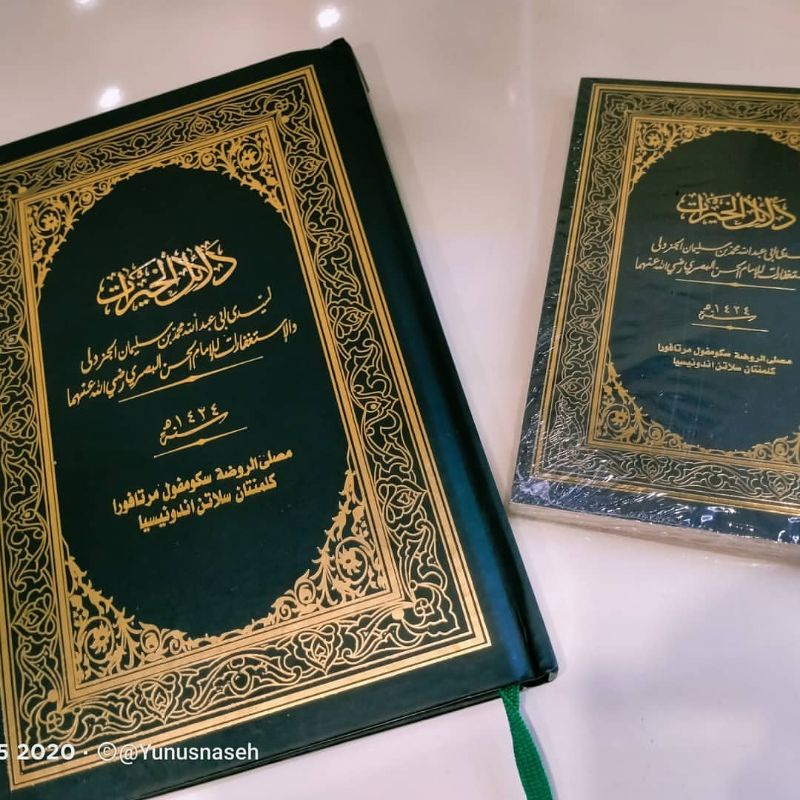 دلائل الخيرات
لسيدى ابى عبد الله محمد بن سليمان الجزولى
والاستغفارات للإمام الحسن البصري رضي الله عنهما
سنة ١٤٣٤ ه
مصلى الروضة سكومفول مرتافورا
كلمنتان سلاتن اندونيسيا
دلائل الخيرات
ى ابى عبد الله محمد بن سليمان الجزولى
للإمام الحسن البصري رضي الله عنهما
سنة ١٤٣٤ ه
مصلى الروضة سكومفول مرتافورا
كلمنتان سلاتن اندونيسيا
5 2020 · ©@Yunusnaseh